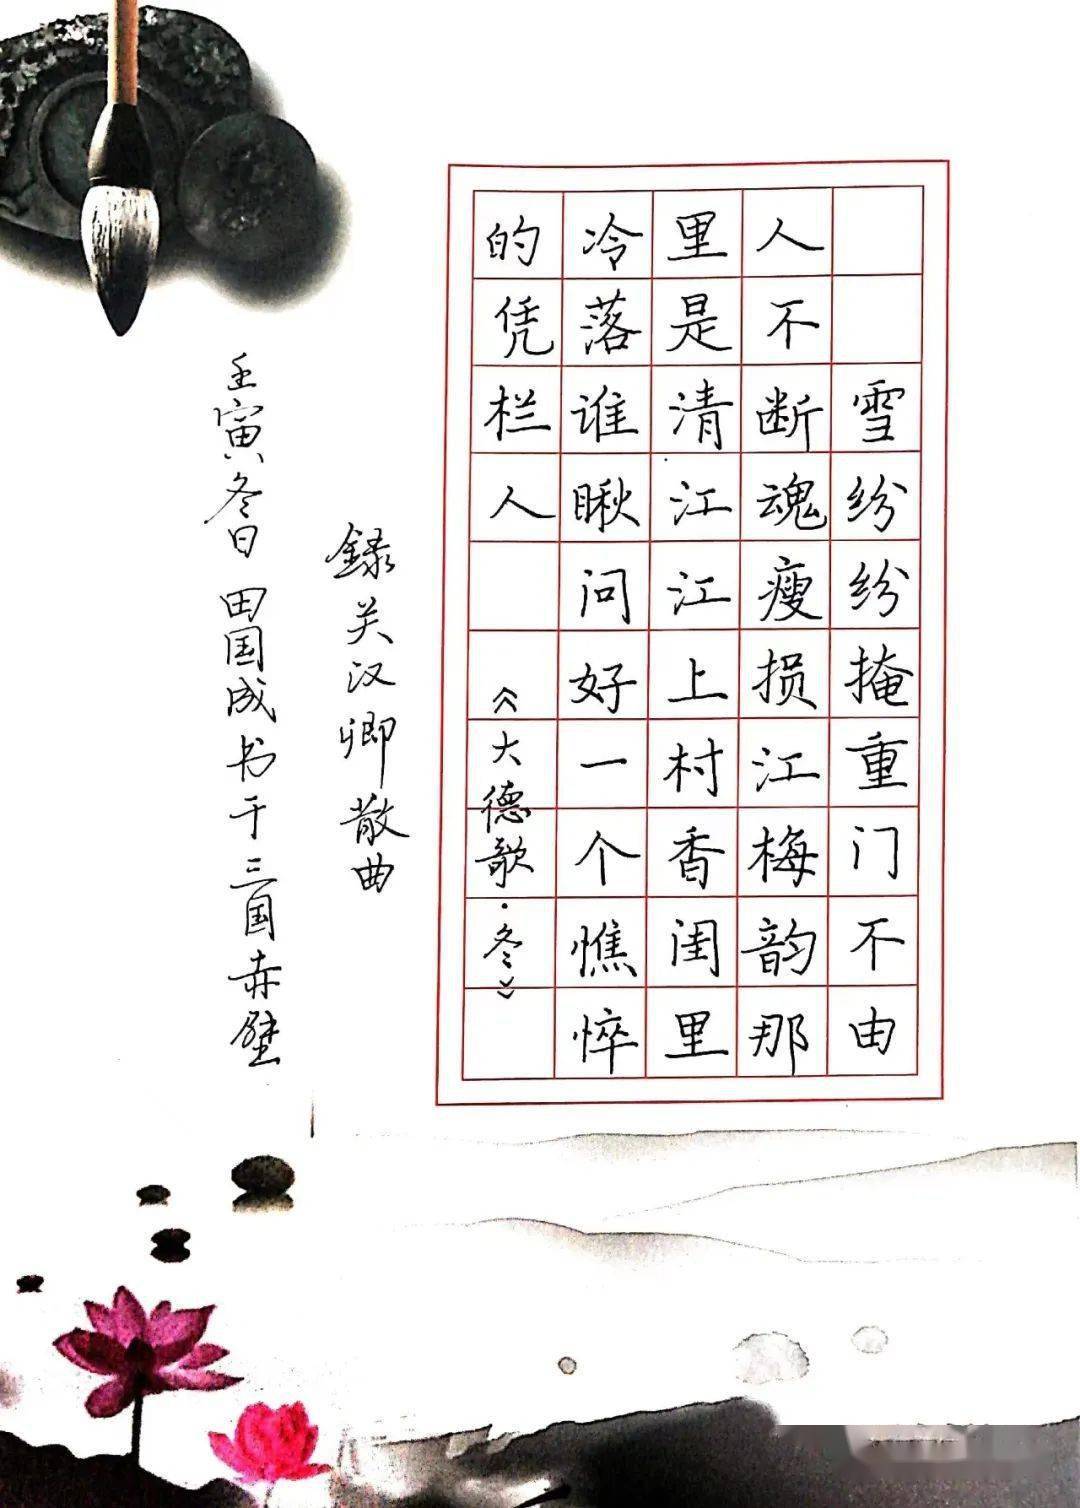 雪纷纷掩重门不由
人不断魂瘦损江梅韵那
里是清江江上村香闺里
冷落谁瞅问好一个憔悴
的凭栏人 《大德歌·冬》
録关汉卿散曲
壬寅冬日 田国成书于三国赤壁